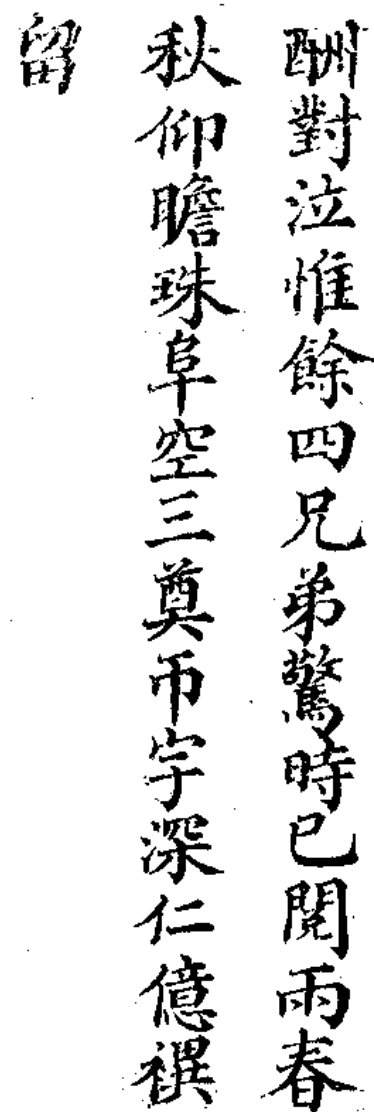 酬對泣惟餘四兄弟驚時已閱兩春
秋仰瞻珠阜空三奠帀宇深仁億禩
留